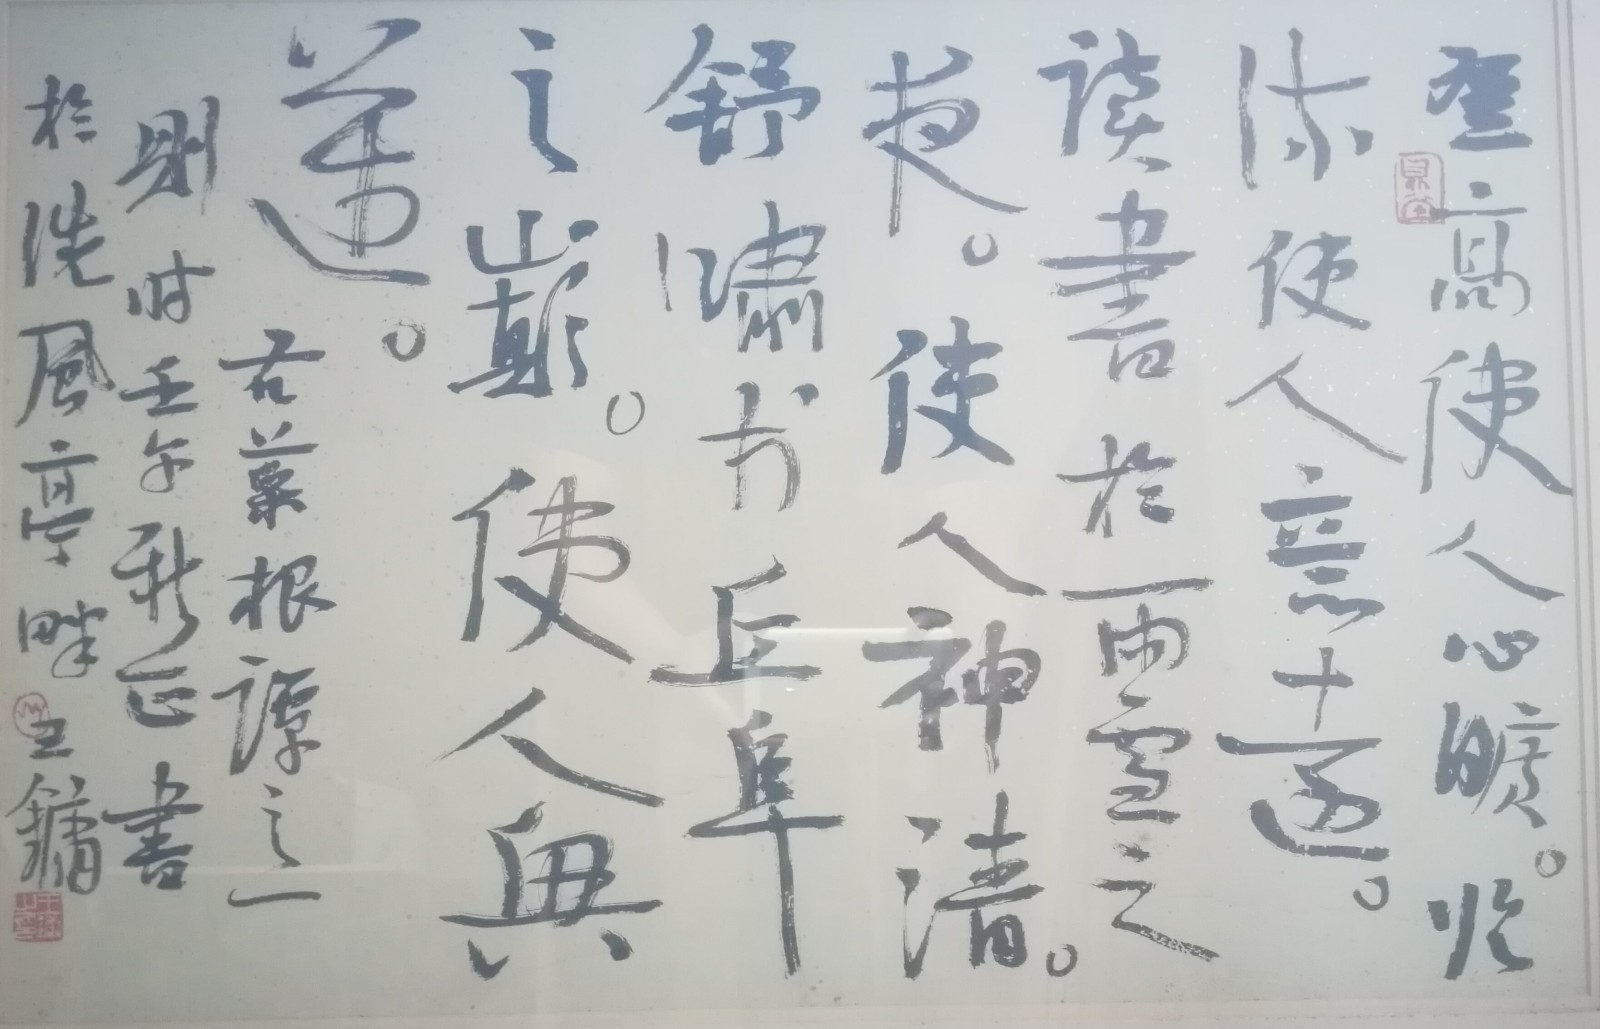 登高使人心曠。临
流使人意遠。
读書於雨雪之
夜。使人神清。
舒嘯於丘阜
之巔。使人興
邁。
右菜根譚之一
时壬午新正書
於洗風亭畔 王鏞